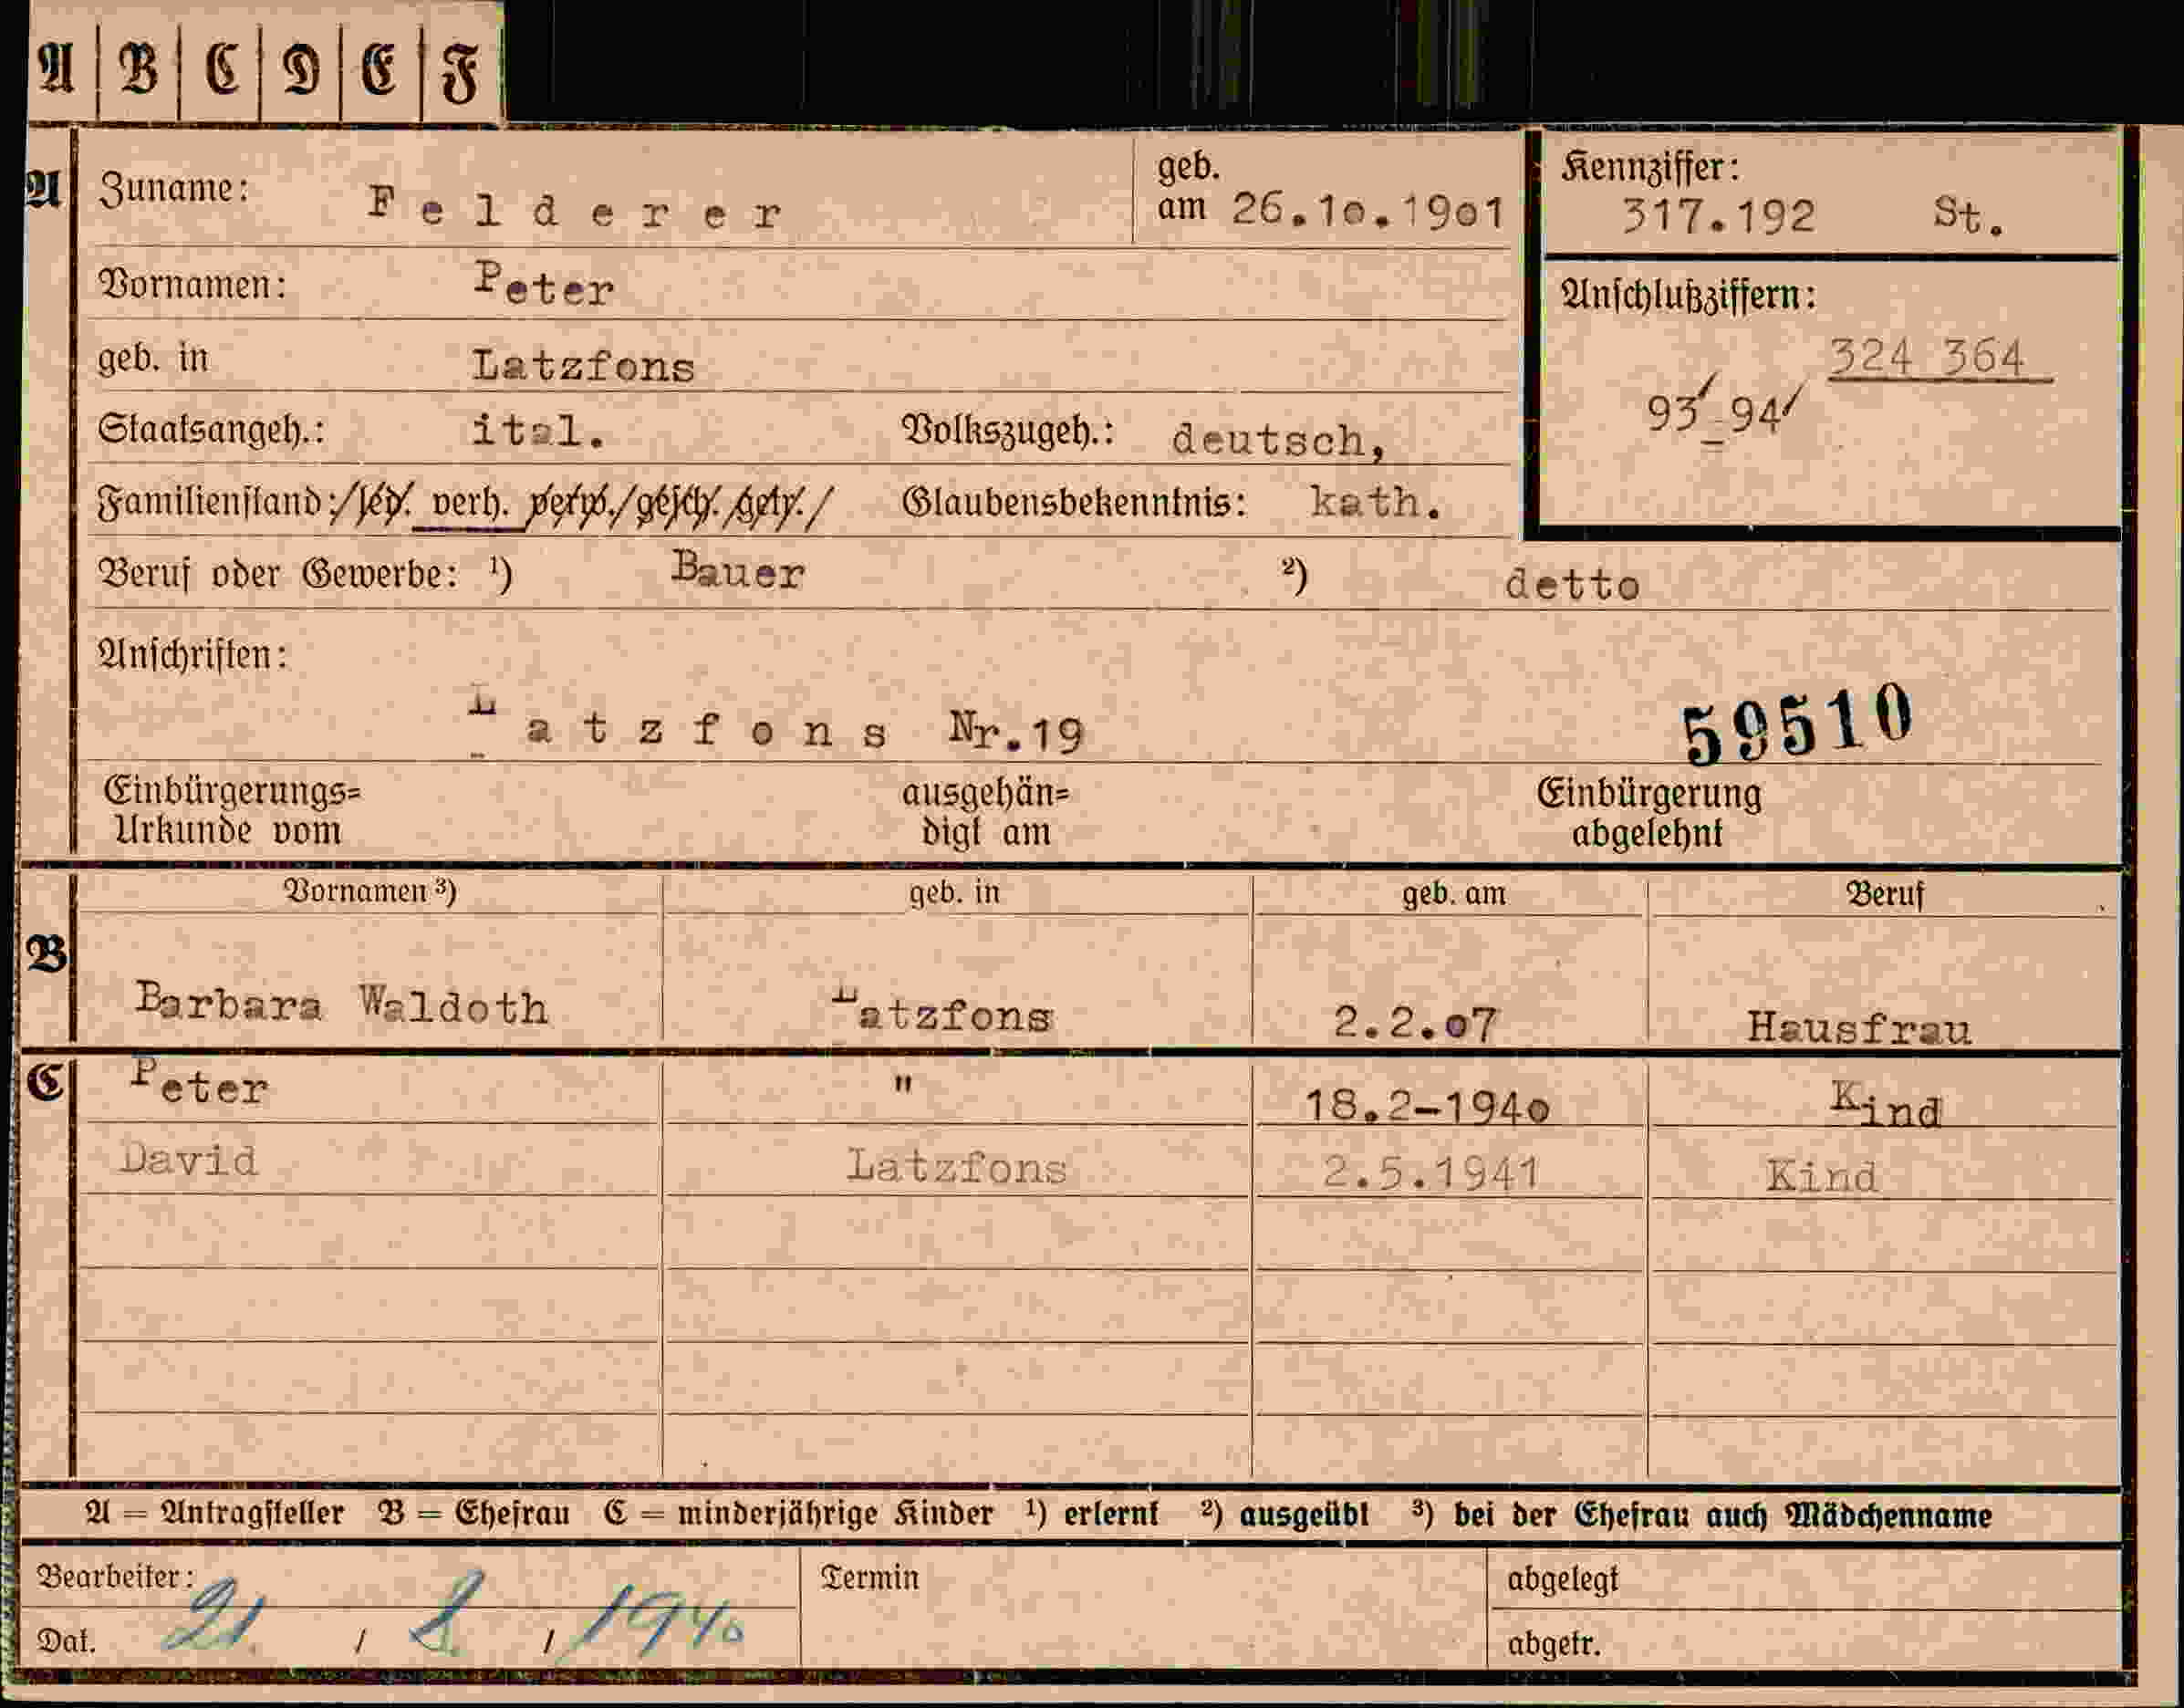 A B C D E F
A Zuname: Felderer geb. am 26.10.1901 Kennziffer: 317.192 St.
Vornamen: Peter Anschlußziffern:
324 364
geb. in Latzfons
93-94
Staatsangeh.: ital. Volkszugeh.: deutsch,
Familienstand: led. verh. verw. gesch. getr. Glaubensbekenntnis: kath.
Beruf oder Gewerbe: ¹) Bauer ²) detto
Anschriften:
Latzfons Nr.19 59510
Einbürgerungs= ausgehän= Einbürgerung
Urkunde vom digt am abgelehnt
Vornamen ³) geb. in geb. am Beruf
B Barbara Waldoth Latzfons 2.2.07 Hausfrau
C Peter " 18.2-1940 Kind
David Latzfons 2.5.1941 Kind
A = Antragsteller B = Ehefrau C = minderjährige Kinder ¹) erlernt ²) ausgeübt ³) bei der Ehefrau auch Mädchenname
Bearbeiter: Termin abgelegt
Dat. 21 / 8 / 1940 abgetr.